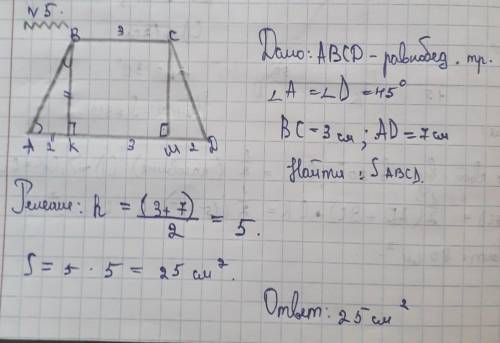 N 5.
B 3 C
A 2 K 3 M 2 D
Дано: ABCD - равнобед. тр.
∠A = ∠D = 45°
BC = 3 см; AD = 7 см
Найти: S ABCD.
Решение: h = (3+7)/2 = 5.
S = 5 · 5 = 25 см².
Ответ: 25 см²